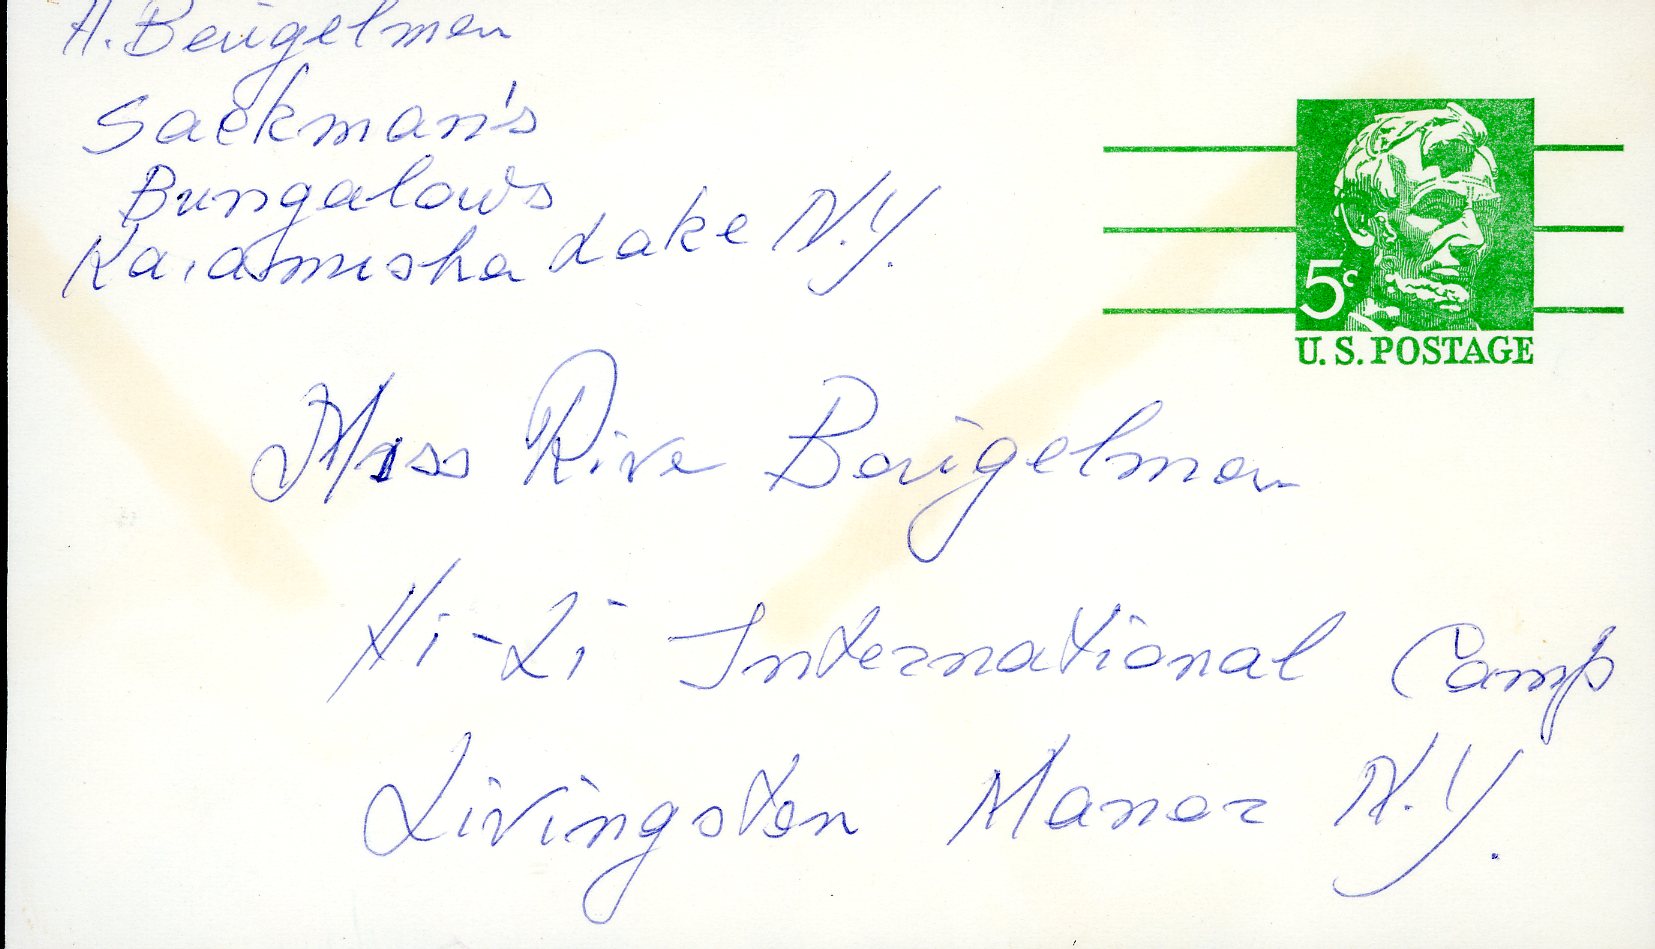 H. Beugelman
Sackman's
Bungalows
Kaiamesha Lake N.Y.
5c
U. S. POSTAGE
Miss Rive Beugelman
Hi-Li International Camp
Livingston Manor N.Y.